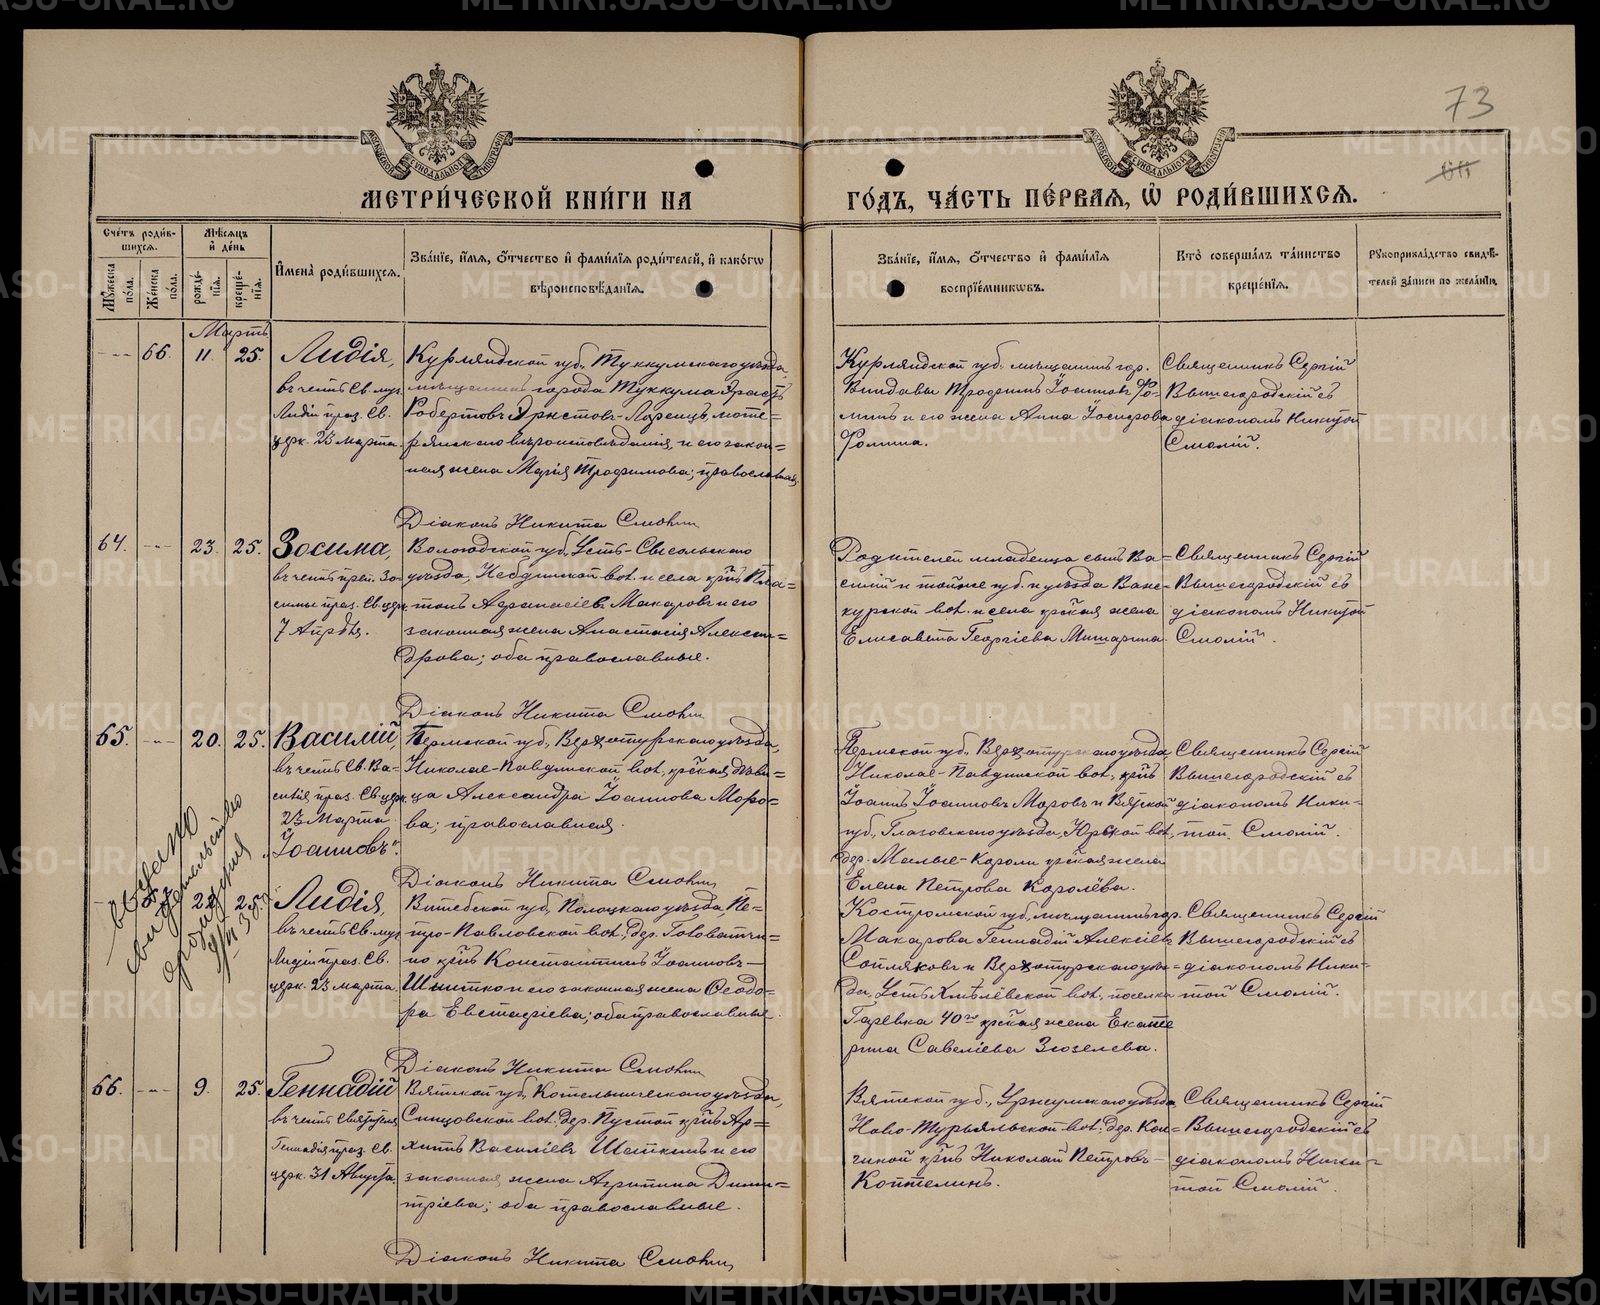 73
МЕТРИ́ЧЕСКОЙ КНИ́ГИ НА ГО́ДЪ, ЧА́СТЬ ПЕ́РВАЯ, Ѽ РОДИ́ВШИХСЯ.
Сче́тъ роди́вшихся.
Му́жеска по́ла.
Же́нска по́ла.
Мѣ́сяцъ и де́нь
рожде́нїя.
креще́нїя.
И҆мена̀ роди́вшихся.
Зва́нїе, и҆́мя, ѻ҆́тчество и҆ фами́лїя роди́телей, и҆ како́гѡ
вѣроисповѣ́данїя.
Зва́нїе, и҆́мя, ѻ҆́тчество и҆ фами́лїя
воспрїе́мникѡвъ.
Кто̀ соверша́лъ та́инство
креще́нїя.
Рꙋкоприкла́дство свидѣ́телей за́писи по жела́нїю.
Мартъ
66. 11. 25.
Лидія,
въ честь Св. муч.
Лидіи праз. Св.
церк. 23 марта.
Курляндской губ., Туккумскаго уѣзда,
мѣщанинъ города Туккума Эрнстъ
Робертовъ Эрнстовъ-Лоренцъ, люте-
ранскаго вѣроисповѣданія, и его закон-
ная жена Марія Трофимова; православная.
Діаконъ Никита Смолій
Курляндской губ. мѣщанинъ гор.
Виндавы Трофимъ Іосифовъ Фо-
минъ и его жена Анна Іосифова
Фомина.
Священникъ Сергій
Вышегородскій съ
діакономъ Никитой
Смолій.
64. 23. 25.
Зосима,
въ честь преп. Зо-
симы праз. Св. церк.
7 Апрѣля.
Вологодской губ., Усть-Сысольскаго
уѣзда, Небдинской вол. и села крїнъ Пла-
тонъ Афанасіевъ Макаровъ и его
законная жена Анастасія Алексан-
дрова; оба православные.
Діаконъ Никита Смолій
Родителей младенца сынъ Ва-
силій и тойже губ. и уѣзда
курской вол. и села крїская жена
Елисавета Георгіева Мишарина.
Священникъ Сергій
Вышегородскій съ
діакономъ Никитой
Смолій.
65. 20. 25.
Василій
въ честь Св. Ва-
силія праз. Св. церк.
23 Марта
„Іоанновъ“.
Пермской губ., Верхотурскаго уѣзда,
Николае-Павдинской вол., крїская дѣви-
ца Александра Іоаннова Моро-
ва; православная.
Діаконъ Никита Смолій
Пермской губ., Верхотурскаго уѣзда,
Николае-Павдинской вол., крїнъ
Іоаннъ Іоанновъ Моровъ и Вятской
губ., Глазовскаго уѣзда, Юрской вол.,
дер. Малые-Короли крїская жена
Елена Петрова Королёва.
Священникъ Сергій
Вышегородскій съ
діакономъ Ники-
той Смолій.
Выдано
свидетельство
рождения
22. 25.
Лидія,
въ честь Св. муч.
Лидіи праз. Св.
церк. 23 марта.
Витебской губ., Полоцкаго уѣзда, Пе-
тро-Павловской вол., дер. Головатчи-
но крїнъ Константинъ Іоанновъ
Шнитко и его законная жена Ѳеодо-
ра Евстафіева; оба православные.
Діаконъ Никита Смолій
Костромской губ., мѣщанинъ гор.
Макарова Геннадій Алексіевъ
Сопляковъ и Верхотурскаго уѣз-
да, Усть-Хмѣлёвской вол., поселка
Гаревка 40го крїская жена Екате
рина Савеліева Зюзелева.
Священникъ Сергій
Вышегородскій съ
діакономъ Ники-
той Смолій.
66. 9. 25.
Геннадій
въ честь Святителя
Геннадія праз. Св.
церк. 31 Августа.
Вятской губ., Котельническаго уѣзда,
Спицовской вол. дер. Пустой крїнъ Ар-
хипъ Василіевъ Шеткинъ и его
законная жена Агрипина Дими-
тріева; оба православные.
Діаконъ Никита Смолій
Вятской губ., Уржумскаго уѣзда,
Ново-Турьяльской вол. дер. Кон-
чиной крїнъ Николай Петровъ
Коптелинъ.
Священникъ Сергій
Вышегородскій съ
діакономъ Ники-
той Смолій.
METRIKI.GASO-URAL.RU